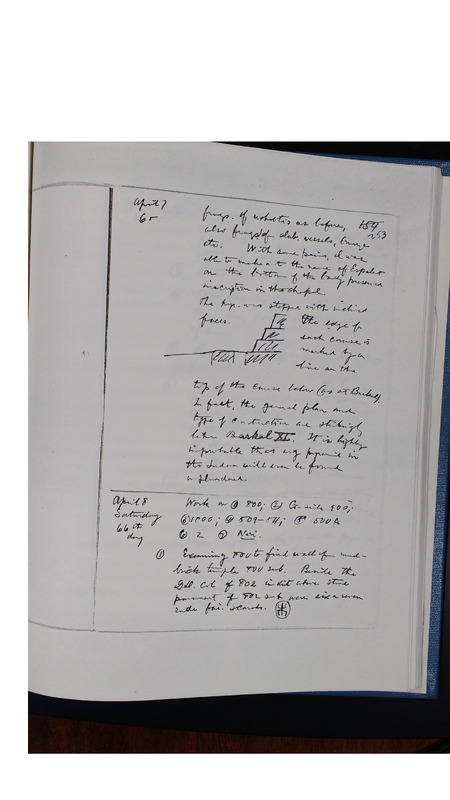 April 7
65
154
253
frags. of ushabtis as before,
also frags of alab. vessels, bronze
etc. With some pains, I was
able to make out the name of
on the bottom of the badly preserved
inscription in the chapel.
The pyr. was stepped with inclined
faces. The edge of
each course is
marked by a
line on the
top of the course below (as at Barkal).
In fact, the general plan and
type of construction are strikingly
like Barkal XI. It is highly
improbable that any pyramid in
the Sudan will ever be found
unplundered.
April 8
Saturday
66th
day
Work on ① 800; ② Cr. side 900;
③ 1000; ④ 509-511; ⑤ 500A
⑥ 2 ⑦ Nuri.
① Examining 800 to find wall of mud-
brick temple 800 sub. Beside the
of 802 in
pavement of 802 sub were
scarabs.